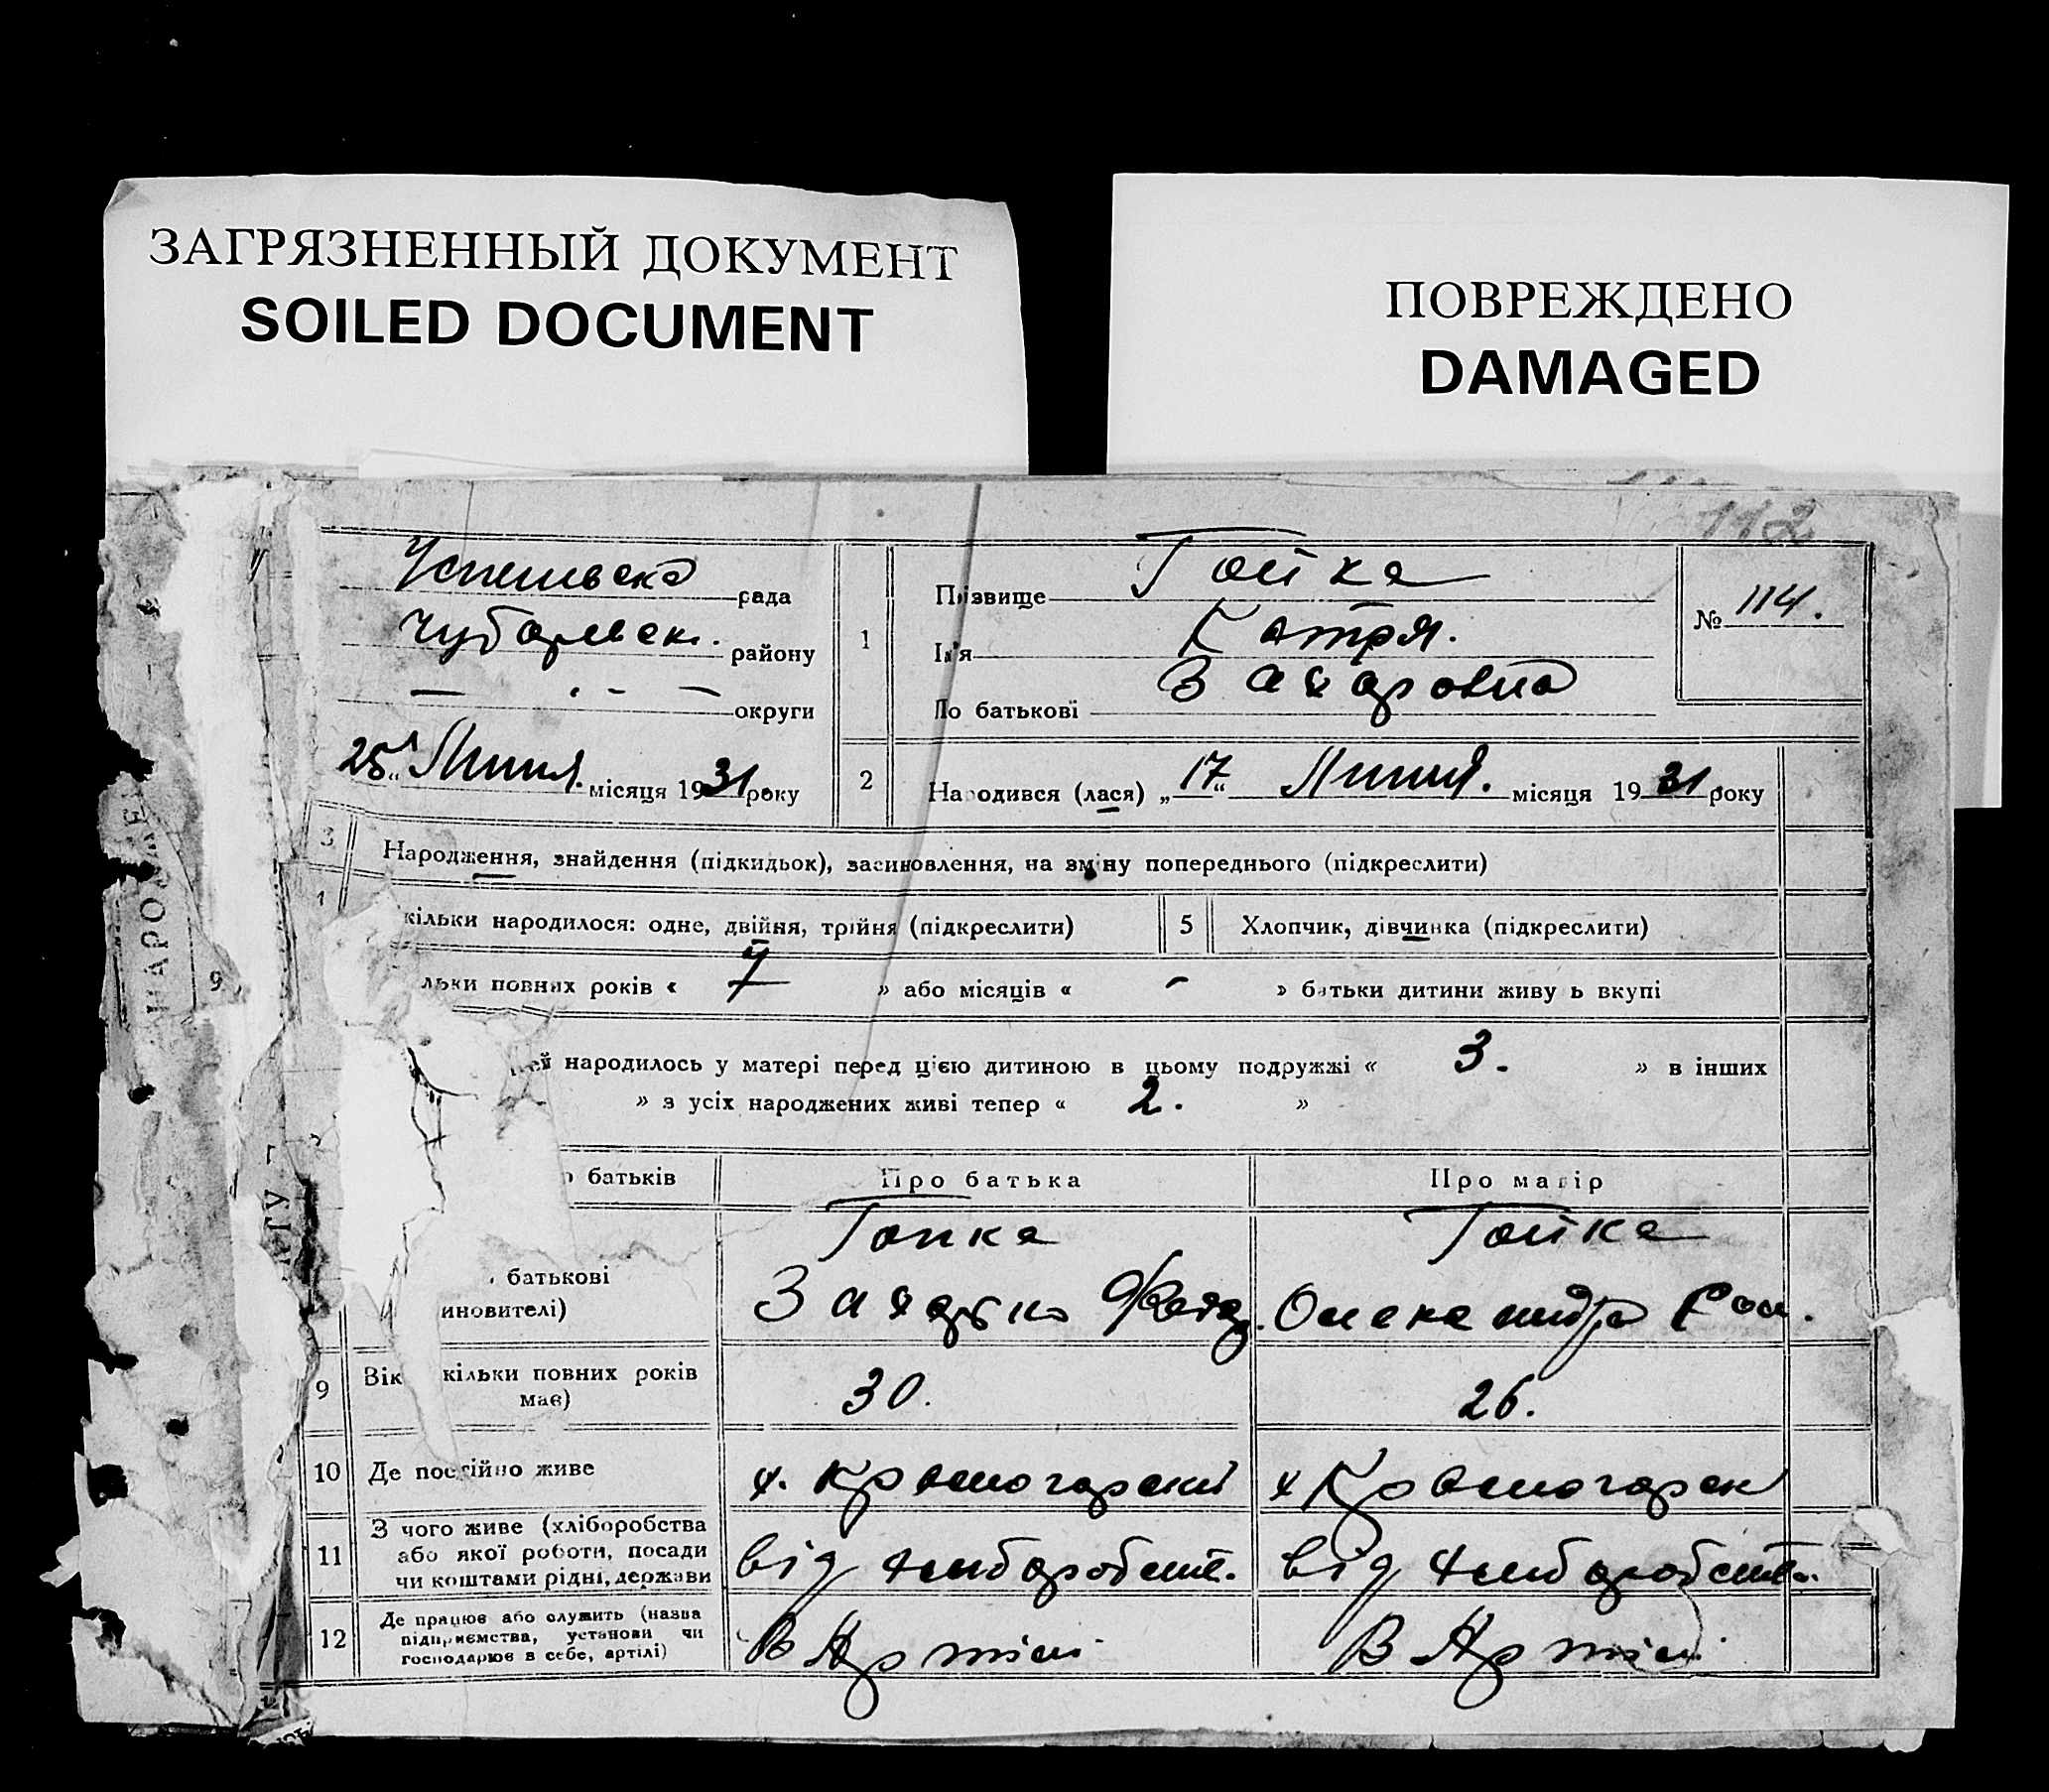 ЗАГРЯЗНЕННЫЙ ДОКУМЕНТ
SOILED DOCUMENT
ПОВРЕЖДЕНО
DAMAGED
112
Успенівска рада
Чубарівськ. району
— · - — округи
25 Липня. місяця 1931 року
1
Прізвище Гойка
Ім'я Катря.
По батькові Захаровна
№ 114.
2
Народився (лася) „17“ Липня. місяця 1931 року
3
Народження, знайдення (підкидьок), засиновлення, на зміну попереднього (підкреслити)
кільки народилося: одне, двійня, трійня (підкреслити)
5
Хлопчик, дівчинка (підкреслити)
льки повних років « » або місяців « - » батьки дитини живуть вкупі
ей народилось у матері перед цією дитиною в цьому подружжі « 3. » в інших
» з усіх народжених живі тепер « 2. »
батьків
Про батька
Про матір
батькові
иновителі)
Гойка
Захарко
Гойка
Олександра
9
Вік кільки повних років
має)
30.
26.
10
Де постійно живе
х. Красногорский
х Красногорск
11
З чого живе (хліборобства
або якої роботи, посади
чи коштами рідні, держави
від хліборобств.
від хліборобств.
12
Де працює або служить (назва
підприємства, установи чи
господарює в себе, артілі)
В Артілі
В Артілі
НАРОДЖЕ
9